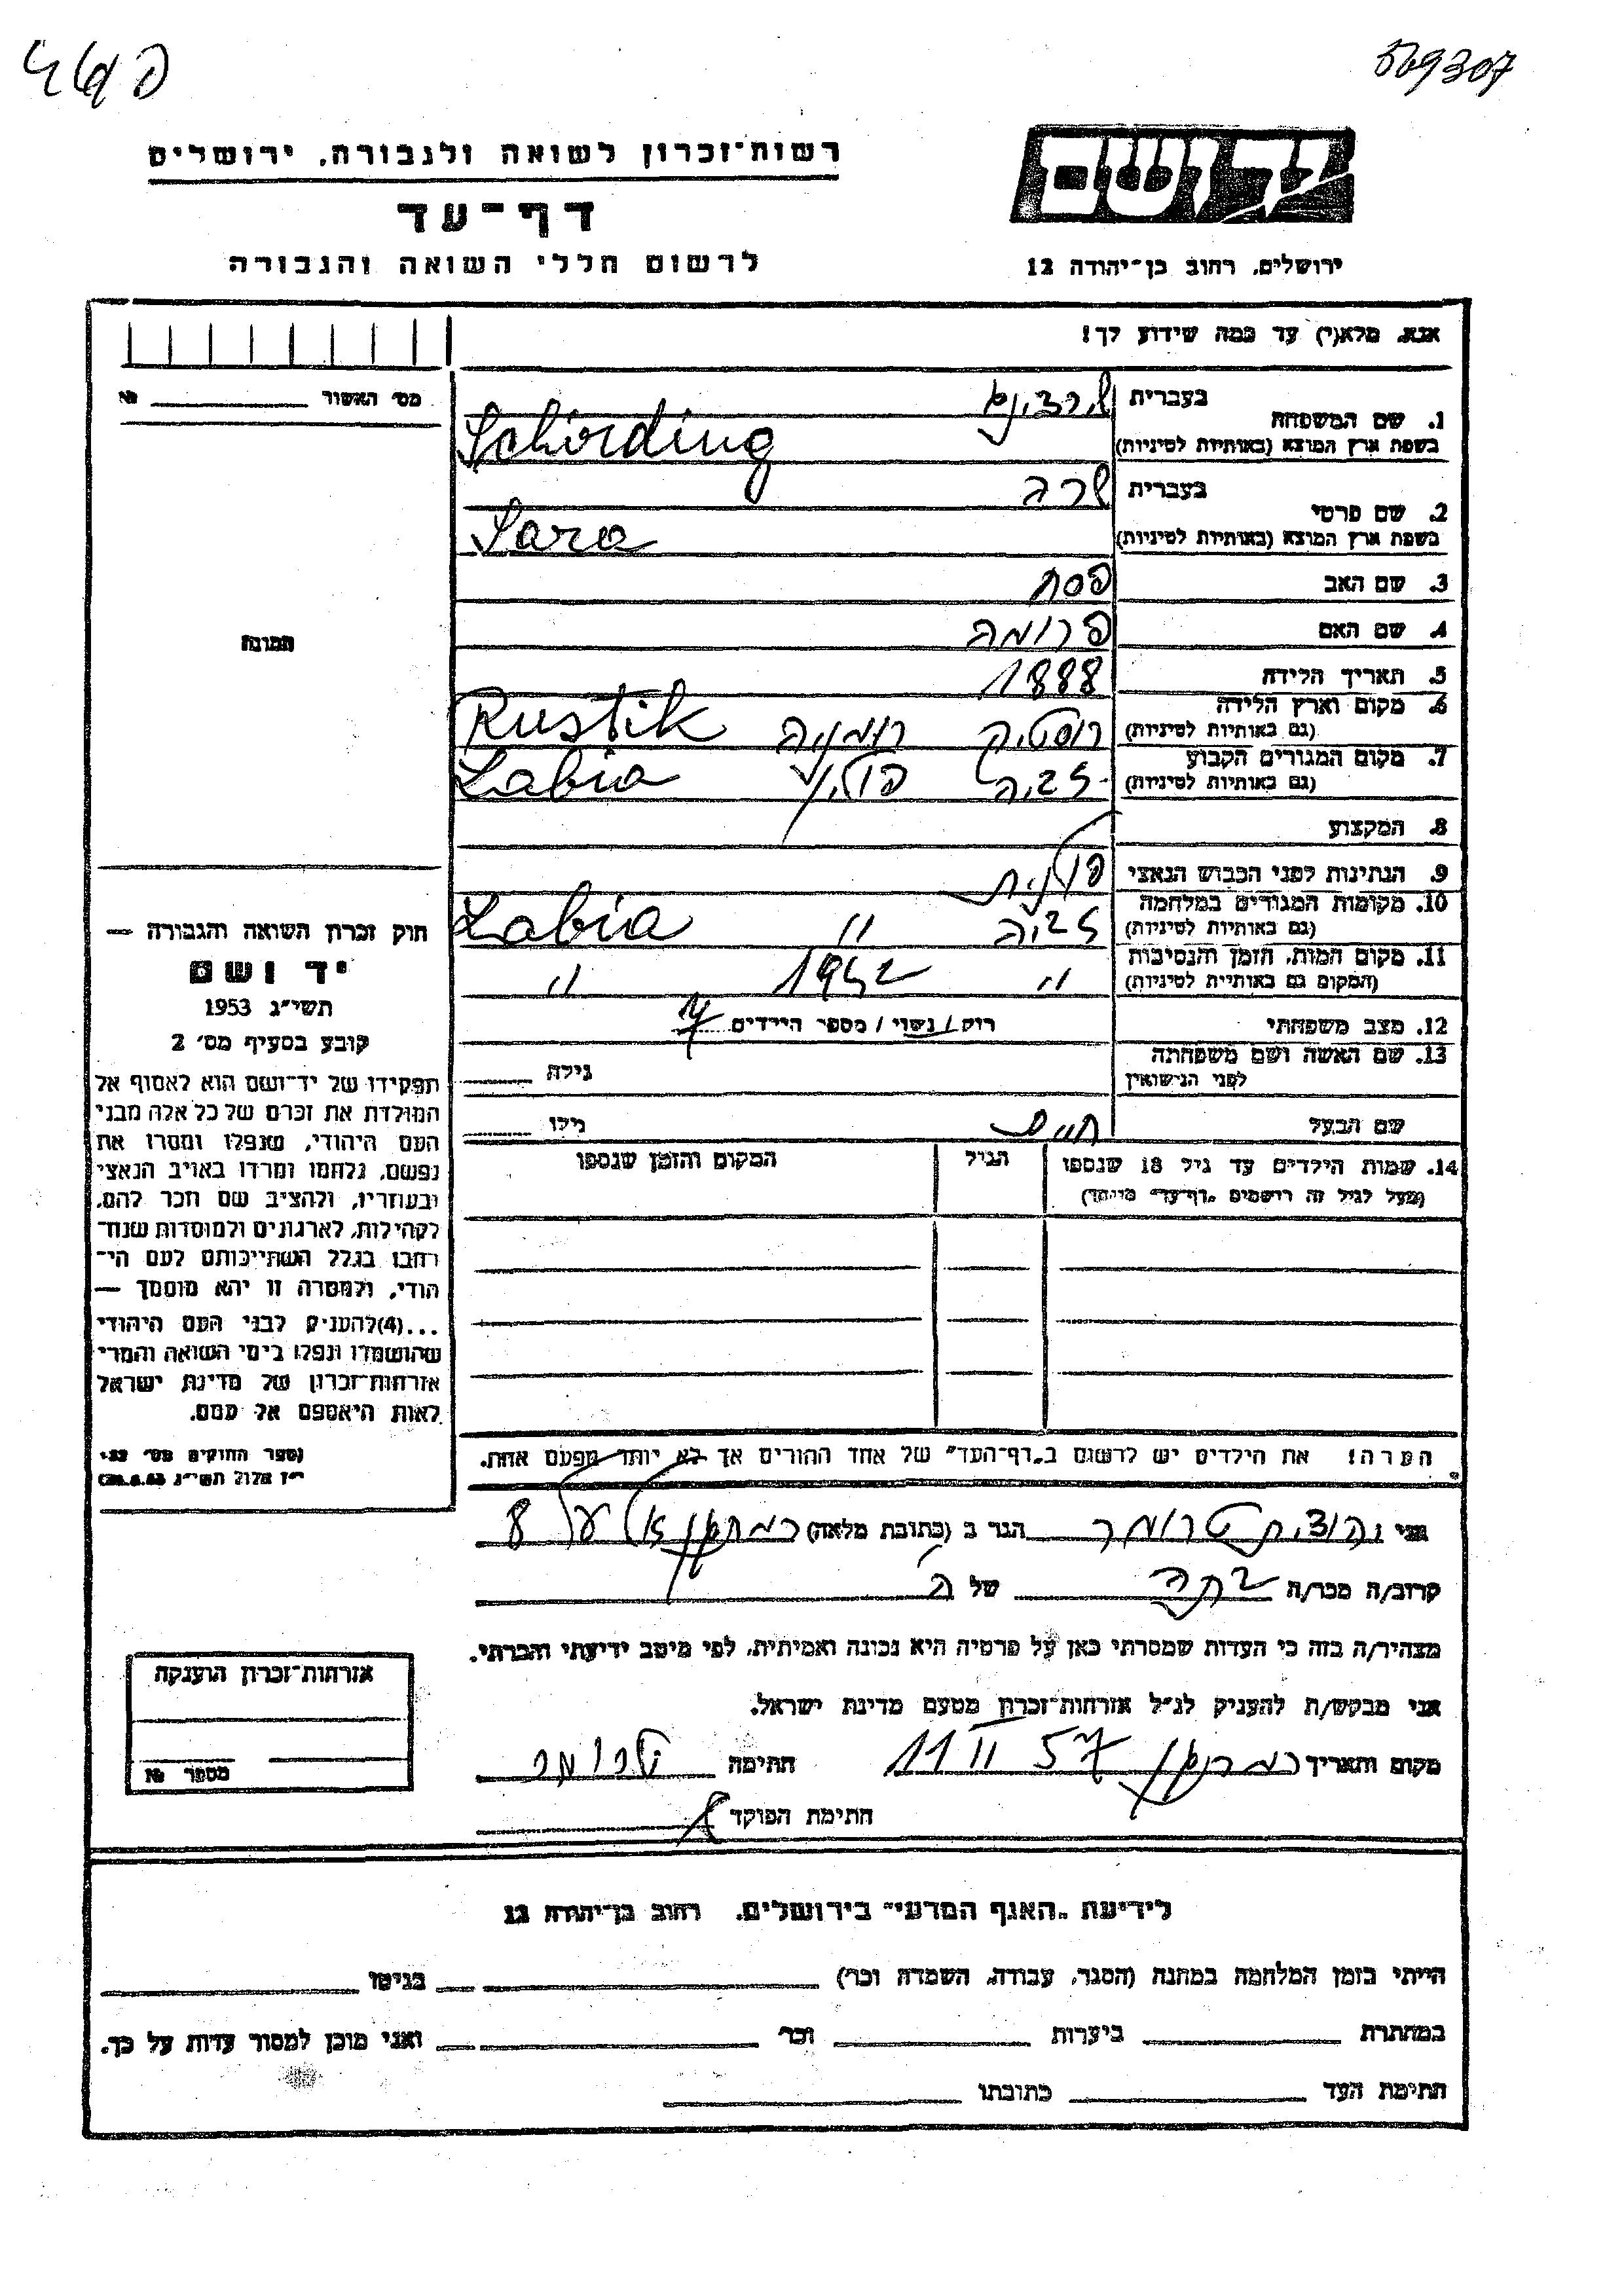 569307
רשות־זכרון לשואה ולגבורה, ירושלים
דף־עד
לרשום חללי השואה והגבורה
יד ושם
ירושלים, רחוב בן־יהודה 12
אנא, מלא(י) עד כמה שידוע לך!
מס׳ האשור № 
1. שם המשפחה בעברית שרדינג
בשפת ארץ המוצא (באותיות לטיניות) Schirding
2. שם פרטי בעברית שרה
בשפת ארץ המוצא (באותיות לטיניות) Sara
3. שם האב פסח
4. שם האם פרומה
5. תאריך הלידה 1888
6. מקום וארץ הלידה (גם באותיות לטיניות) רוסטיק רומניה Rustik
7. מקום המגורים הקבוע (גם באותיות לטיניות) לביה פולין Labia
8. המקצוע
9. הנתינות לפני הכבוש הנאצי פולנית
10. מקומות המגורים במלחמה (גם באותיות לטיניות) לביה " Labia
11. מקום המות, הזמן והנסיבות (המקום גם באותיות לטיניות) " 1942 "
12. מצב משפחתי רווק / נשוי / מספר הילדים
13. שם האשה ושם משפחתה לפני הנישואין גילה
שם הבעל חיים גילו
14. שמות הילדים עד גיל 18 שנספו הגיל המקום והזמן שנספו
(מעל לגיל זה רושמים „דף־עד״ מיוחד)
הערה! את הילדים יש לרשום ב„דף־העד״ של אחד ההורים אך לא יותר מפעם אחת.
תמונה
חוק זכרון השואה והגבורה —
יד ושם
תשי״ג 1953
קובע בסעיף מס׳ 2
תפקידו של יד־ושם הוא לאסוף אל
המולדת את זכרם של כל אלה מבני
העם היהודי, שנפלו ומסרו את
נפשם, נלחמו ומרדו באויב הנאצי
ובעוזריו, ולהציב שם וזכר להם,
לקהילות, לארגונים ולמוסדות שנח־
רבו בגלל השתייכותם לעם הי־
הודי, ולמטרה זו יהא מוסמך —
...(4)להעניק לבני העם היהודי
שהושמדו ונפלו בימי השואה והמרי
אזרחות־זכרון של מדינת ישראל
לאות היאספם אל עמם.
(ספר החוקים מס׳ 132
י״ז אלול תשי״ג 28.8.53)
אני יהודית טרומר הגר ב (כתובת מלאה) רמת גן 8
קרוב/ה מכר/ה בתה של ה
מצהיר/ה בזה כי העדות שמסרתי כאן על פרטיה היא נכונה ואמיתית, לפי מיטב ידיעתי והכרתי.
אני מבקש/ת להעניק לנ״ל אזרחות־זכרון מטעם מדינת ישראל.
מקום ותאריך רמת גן 11 II 57 חתימה טרומר
חתימת הפוקד
אזרחות־זכרון הוענקה
מספר №
לידיעת „האגף המדעי״ בירושלים, רחוב בן־יהודה 12
הייתי בזמן המלחמה במחנה (הסגר, עבודה, השמדה וכו׳) בגיטו
במחתרת ביערות וכו׳ ואני מוכן למסור עדות על כך.
חתימת העד כתובתו